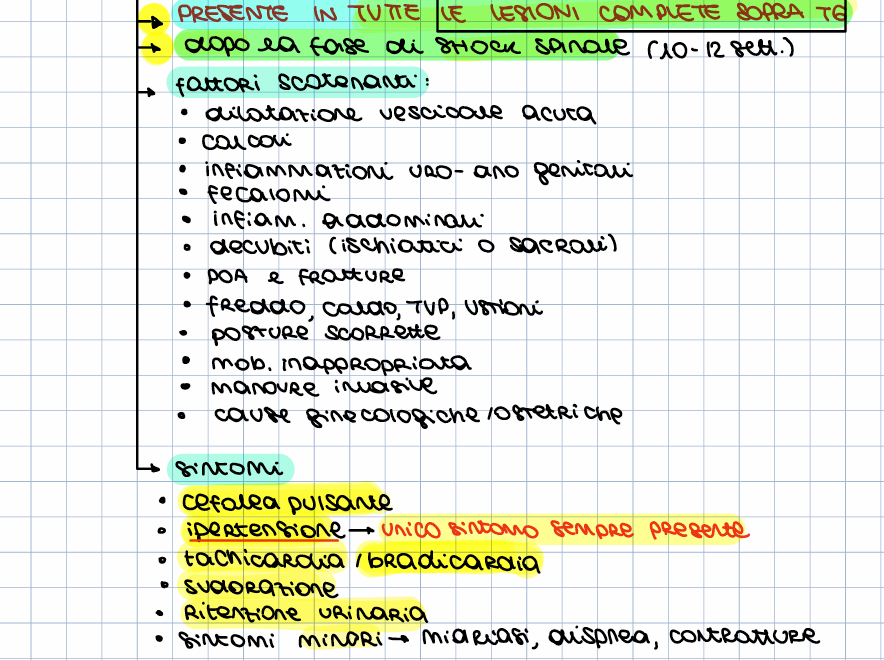 → PRESENTE IN TUTTE LE LESIONI COMPLETE SOPRA T6
→ dopo la fase di SHOCK SPINALE (10-12 sett.)
→ fattori scatenanti:
• dilatazione vescicale acuta
• calcoli
• infiammazioni uro-ano genitali
• fecalomi
• infiam. addominali
• decubiti (ischiatici o sacrali)
• POA e FRATTURE
• freddo, caldo, TVP, USTIONI
• POSTURE SCORRETTE
• mob. inappropriata
• manovre invasive
• cause ginecologiche/ostetriche
→ sintomi
• cefalea pulsante
• ipertensione → unico sintomo sempre presente
• tachicardia / bradicardia
• sudorazione
• Ritenzione urinaria
• sintomi minori → midriasi, dispnea, contratture